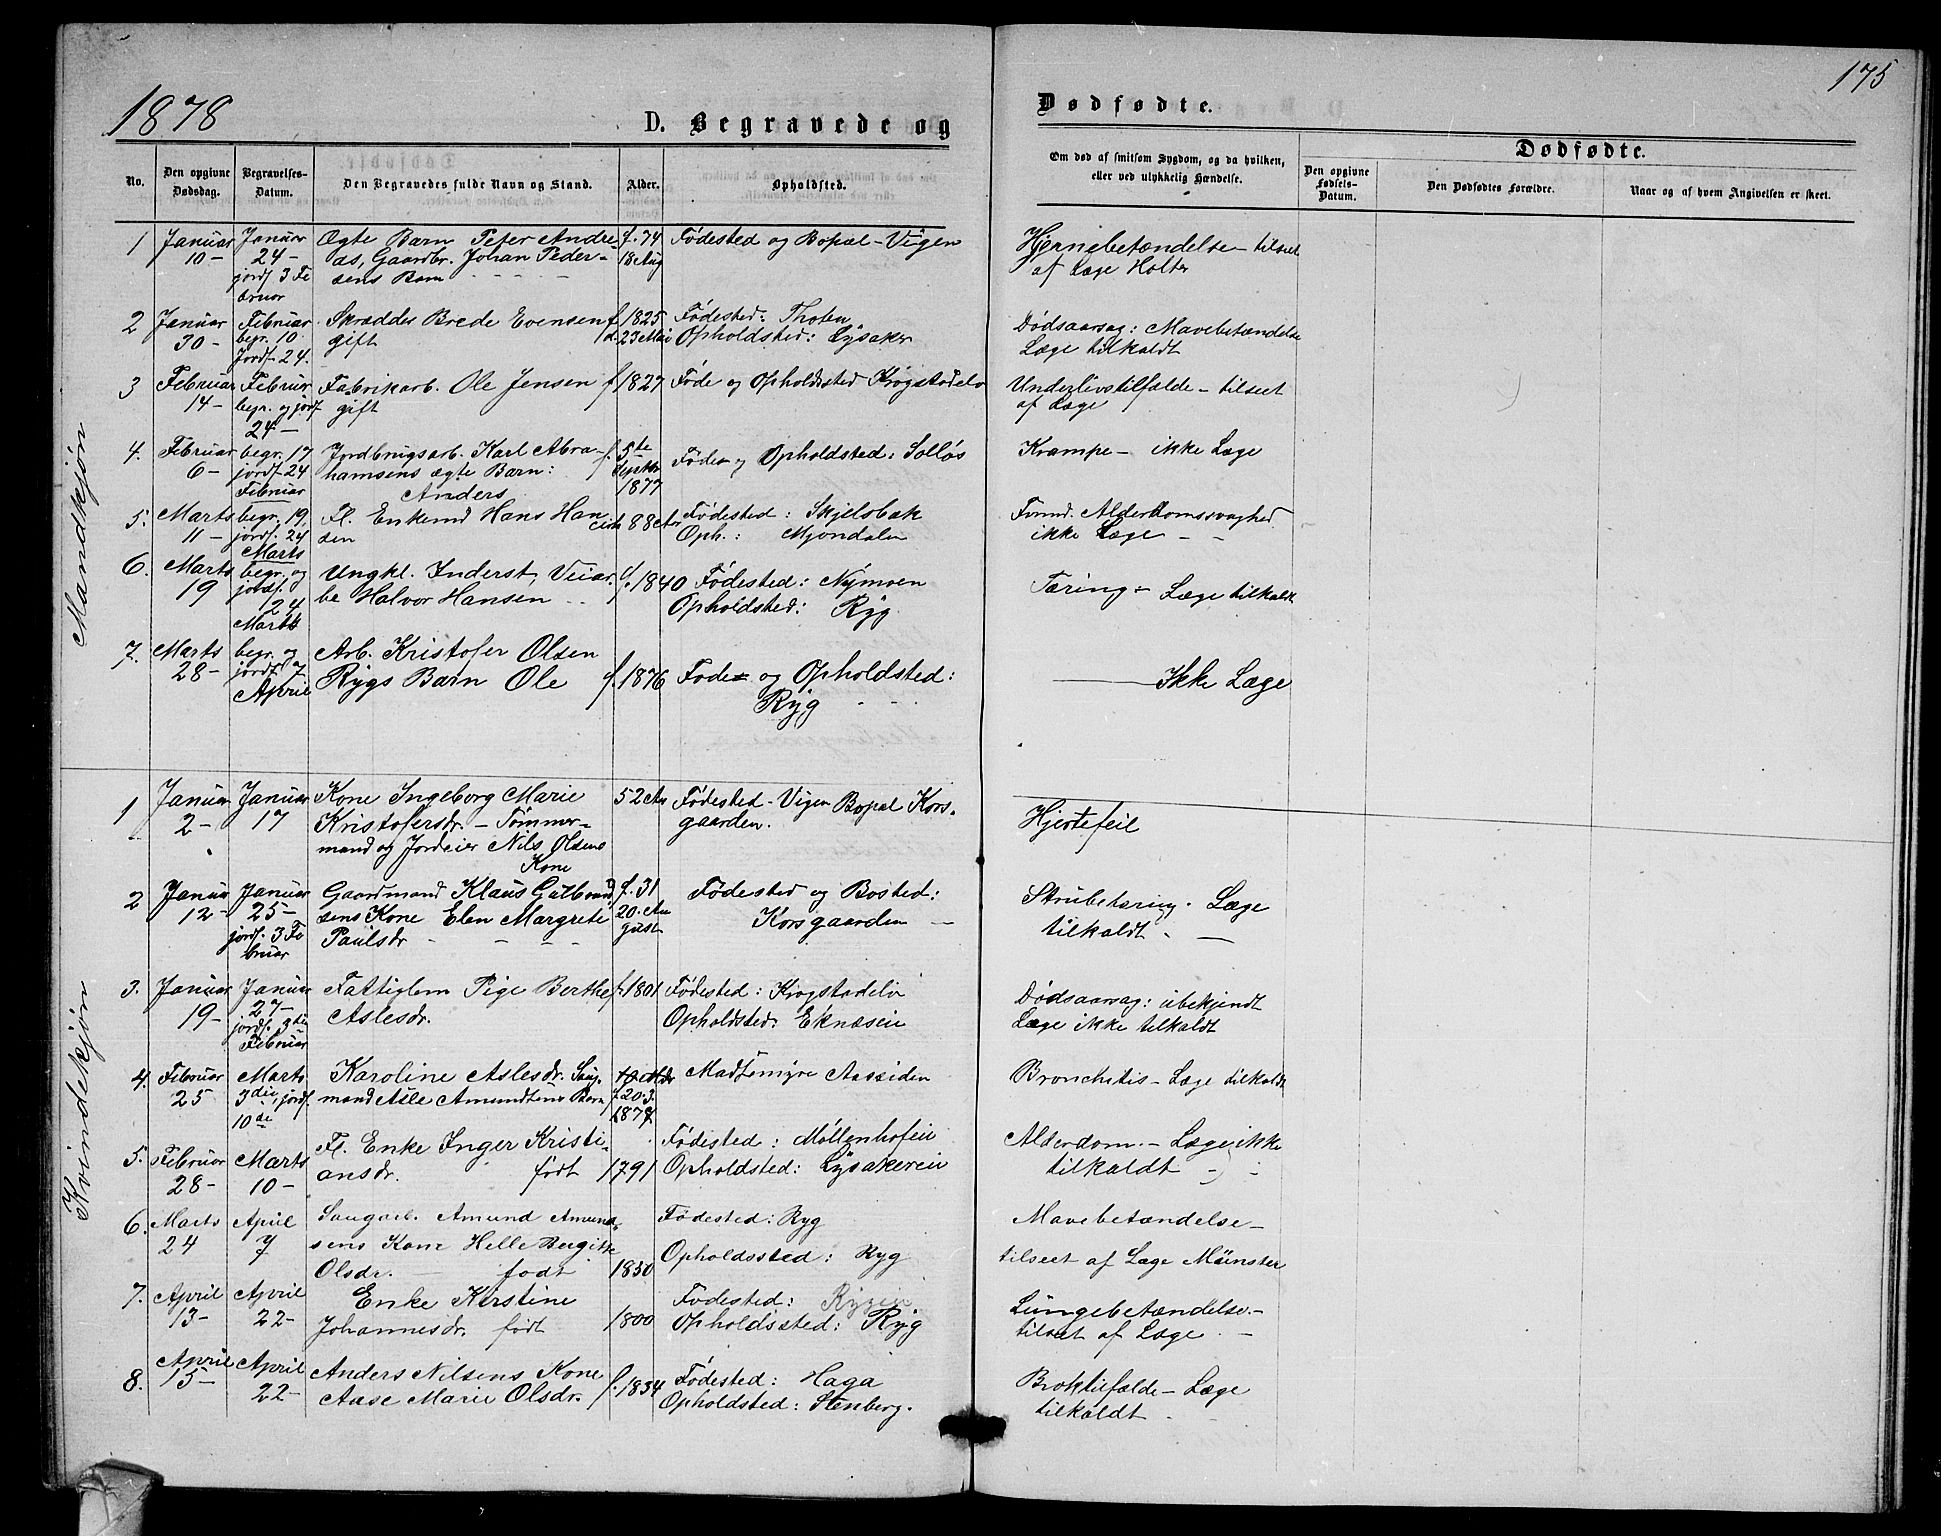 1878
175
D. Begravede og
Dødfødte.
No.
Den opgivne Dødsdag.
Begravelses-Datum.
Den Begravedes fulde Navn og Stand.
Alder.
Opholdsted.
Om død af smitsom Sygdom, og da hvilken, eller ved ulykkelig Hændelse.
Dødfødte.
Den opgivne Fødsels-Datum.
Den Dødfødtes Forældre.
Naar og af hvem Angivelsen er skeet.
Mandkjøn
1 Januar Januar Ægte Barn Peter Andre f. 74 Fødested og Bopæl - Vigen Hjernebetændelse - tilseet
10 - 24 - as, Gaardbr. Johan Peder- 18 Aug af Læge Holter
jordf 3 Fe sens Barn
bruar
2 Januar Februar Skrædder Brede Evensen f. 1825 Fødested: Thoten Dødsaarsag: Mavebetændelse
30 - begr. 10 gift d. 23 Mai Opholdsted: Lysaker Læge tilkaldt
Jordf. 24.
3 Februar Februr Fabrikarb. Ole Jensen f 1827 Føde og Opholdssted Krogstadelv Underlivstilfælde - tilseet
14 - begr. og jordf gift af Læge
24 -
4. Februar begr. 17 Jordbrugsarb. Karl Abra- f. 5te Føde og Opholdsted: Solløs Krampe - ikke Læge
6 - jordf. 24 hamsens ægte Barn: Septbr
Februar Anders 1877
5. Marts begr. 19, Fl. Enkemd Hans Han- cirk 88 Aar Fødested: Skjelsbæk Formd. Alderdomssvaghed
11 - jordf. 24 sen Oph.: Mjondalen ikke Læge - -
Marts
6. Marts begr. og Ungkl. Inderst, Veiar f. 1840 Fødested: Nymoen Tæring - Læge tilkaldt
19 jordf. be Halvor Hansen Opholdsted: Ryg
24
Marts
7. Marts begr. og Arb. Kristofer Olsen
28 - jordf. 7 Rygs Barn Ole f. 1876 Føde og Opholdsted: Ikke Læge
April Ryg
Kvindekjøn
1 Januar Januar Kone Ingeborg Marie 52 Aar Fødested - Vigen Bopæl Kors- Hjertefeil
2 - 17 Kristofersdr. - Tømmer- gaarden.
mand og Jordeier Nils Olsens
Kone
2 Januar Januar Gaardmand Klaus Gulbrand f. 31 Fødested og Bosted: Strubetæring. Læge
12 - 25 - sens Kone Elen Margrete 20. Au Korsgaarden - tilkaldt. -
jordf. 3 Fe Paulsdr - - - - gust
bruar
3. Januar Januar Fattiglem Pige Berthe f. 1801 Fødested: Krogstadelv Dødsaarsag: ubekjendt
19 - 27 - Aslesdr. Opholdsted: Eknæseie Læge ikke tilkaldt
jordf. 3die
Februar
4. Februar Marts Karoline Aslesdr. Saug- Madtemyre Aassiden Bronchitis - Læge tilkaldt
25 3die, jordf. mand Asle Amundsens Barn
10de
5. Februar Marts Fl. Enke Inger Kristi- Fødested: Møllenhofeie Alderdom. - Læge ikke
28 - 10 - ansdr. født 1791 Opholdsted: Lysakereie tilkaldt -
6. Marts April Saugarb. Amund Amund- Fødested: Ryg Mavebetændelse -
24 7 sens Kone Helle Bergitte Opholdssted: Ryg tilseet af Læge Münster
Olsdr. - født 1850
7. April April Enke Kirstine Fødested: Rygeie Lungebetændelse. -
13 - 22 - Johannesdr. født 1800 Opholdssted: Ryg tilseet af Læge. -
8. April April Anders Nilsens Kone f. 1834 Fødested: Haga Broktilfælde - Læge
15 - 22 - Aase Marie Olsdr. Opholdsted: Stenberg. tilkaldt.